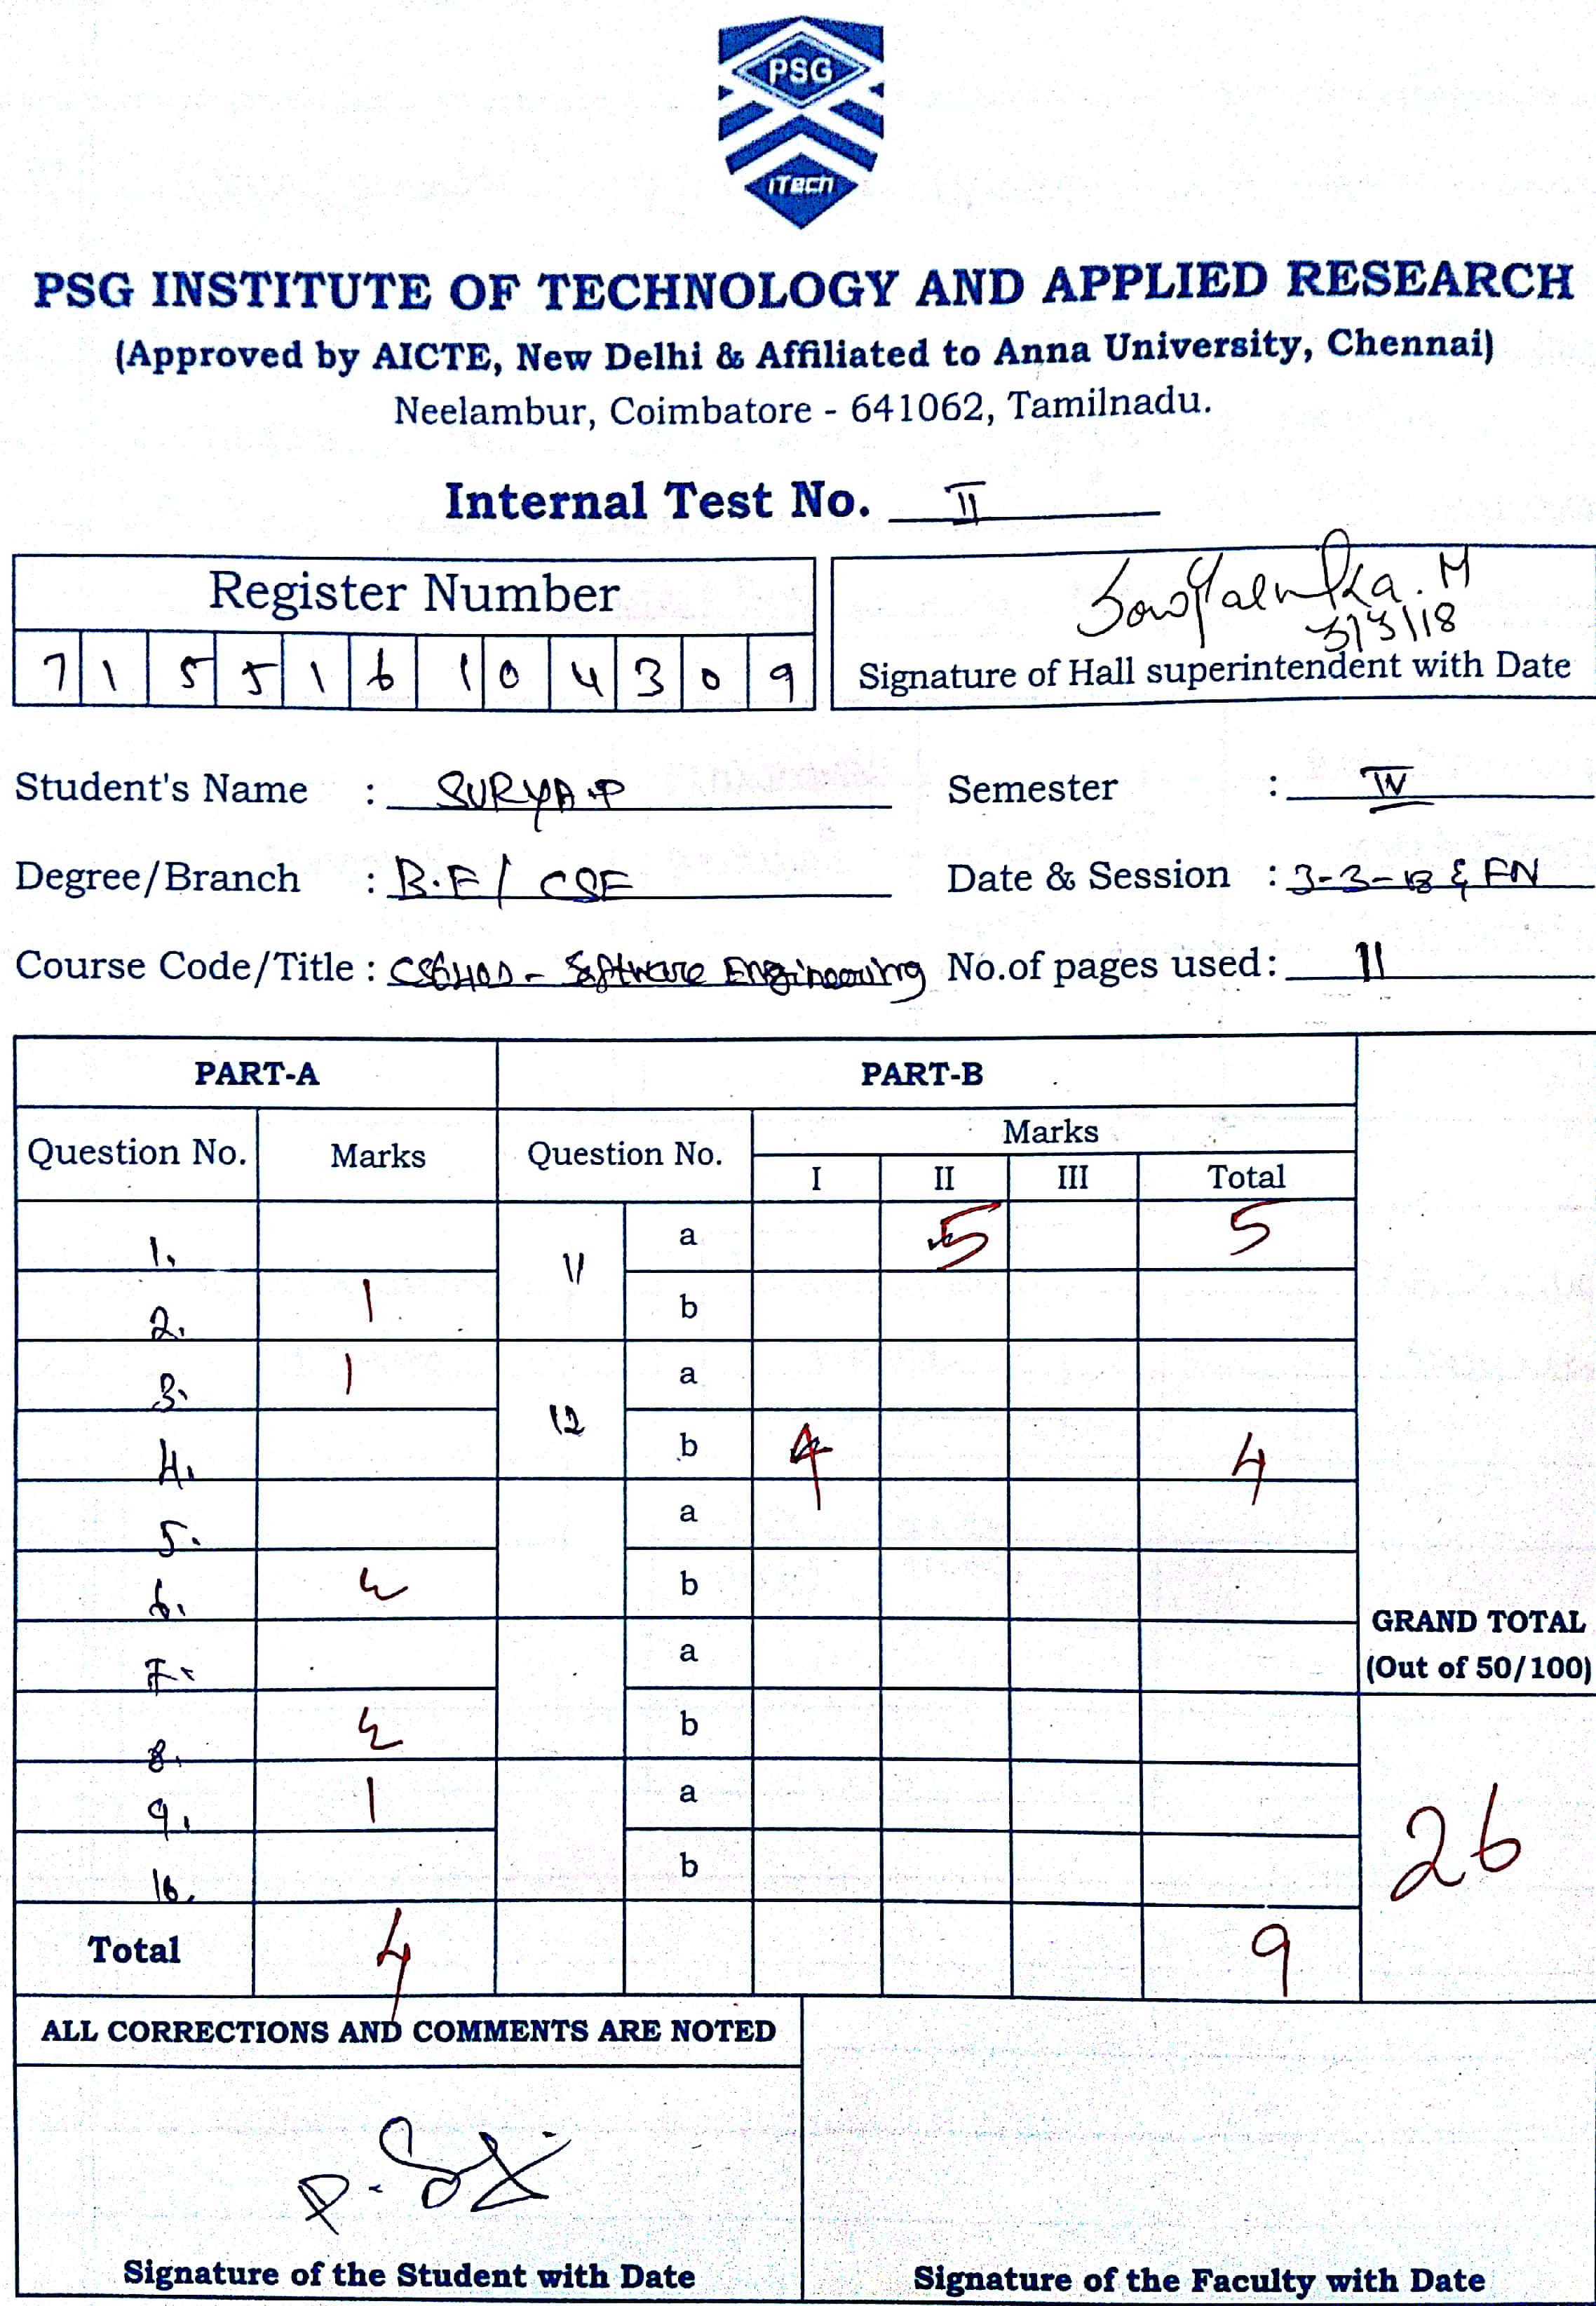 PSG
iTech
PSG INSTITUTE OF TECHNOLOGY AND APPLIED RESEARCH
(Approved by AICTE, New Delhi & Affiliated to Anna University, Chennai)
Neelambur, Coimbatore - 641062, Tamilnadu.
Internal Test No. II
Register Number
7 1 5 5 1 6 1 0 4 3 0 9
3/3/18
Signature of Hall superintendent with Date
Student's Name : SURYA.P Semester : IV
Degree/Branch : B.E/ CSE Date & Session : 3-3-18 & FN
Course Code/Title : - Software Engineering No.of pages used: 11
PART-A PART-B
Question No. Marks Question No. Marks
I II III Total
1. 11 a 5 5
2. 1 b
3. 1 12 a
4. b 4 4
5. a
6. b
7. a
8. b
9. 1 a
10. b
GRAND TOTAL
(Out of 50/100)
26
Total 4 9
ALL CORRECTIONS AND COMMENTS ARE NOTED
Signature of the Student with Date
Signature of the Faculty with Date